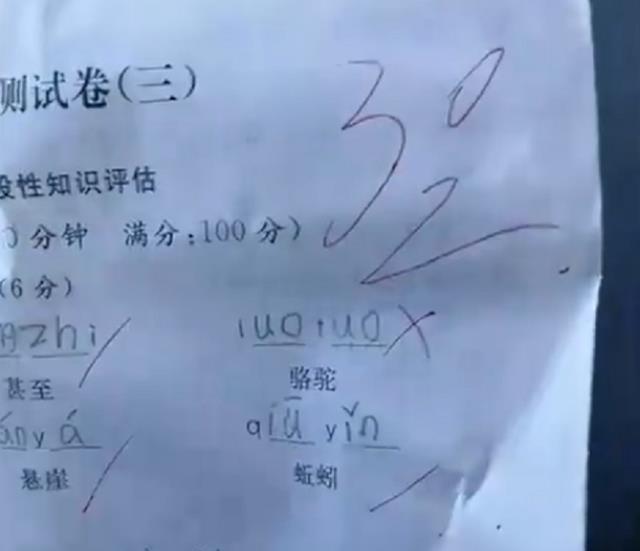 测试卷(三)
30
2
性知识评估
0分钟 满分:100分)
(6分)
zhi luo luo
甚至 骆驼
yá qiū yǐn
悬崖 蚯蚓